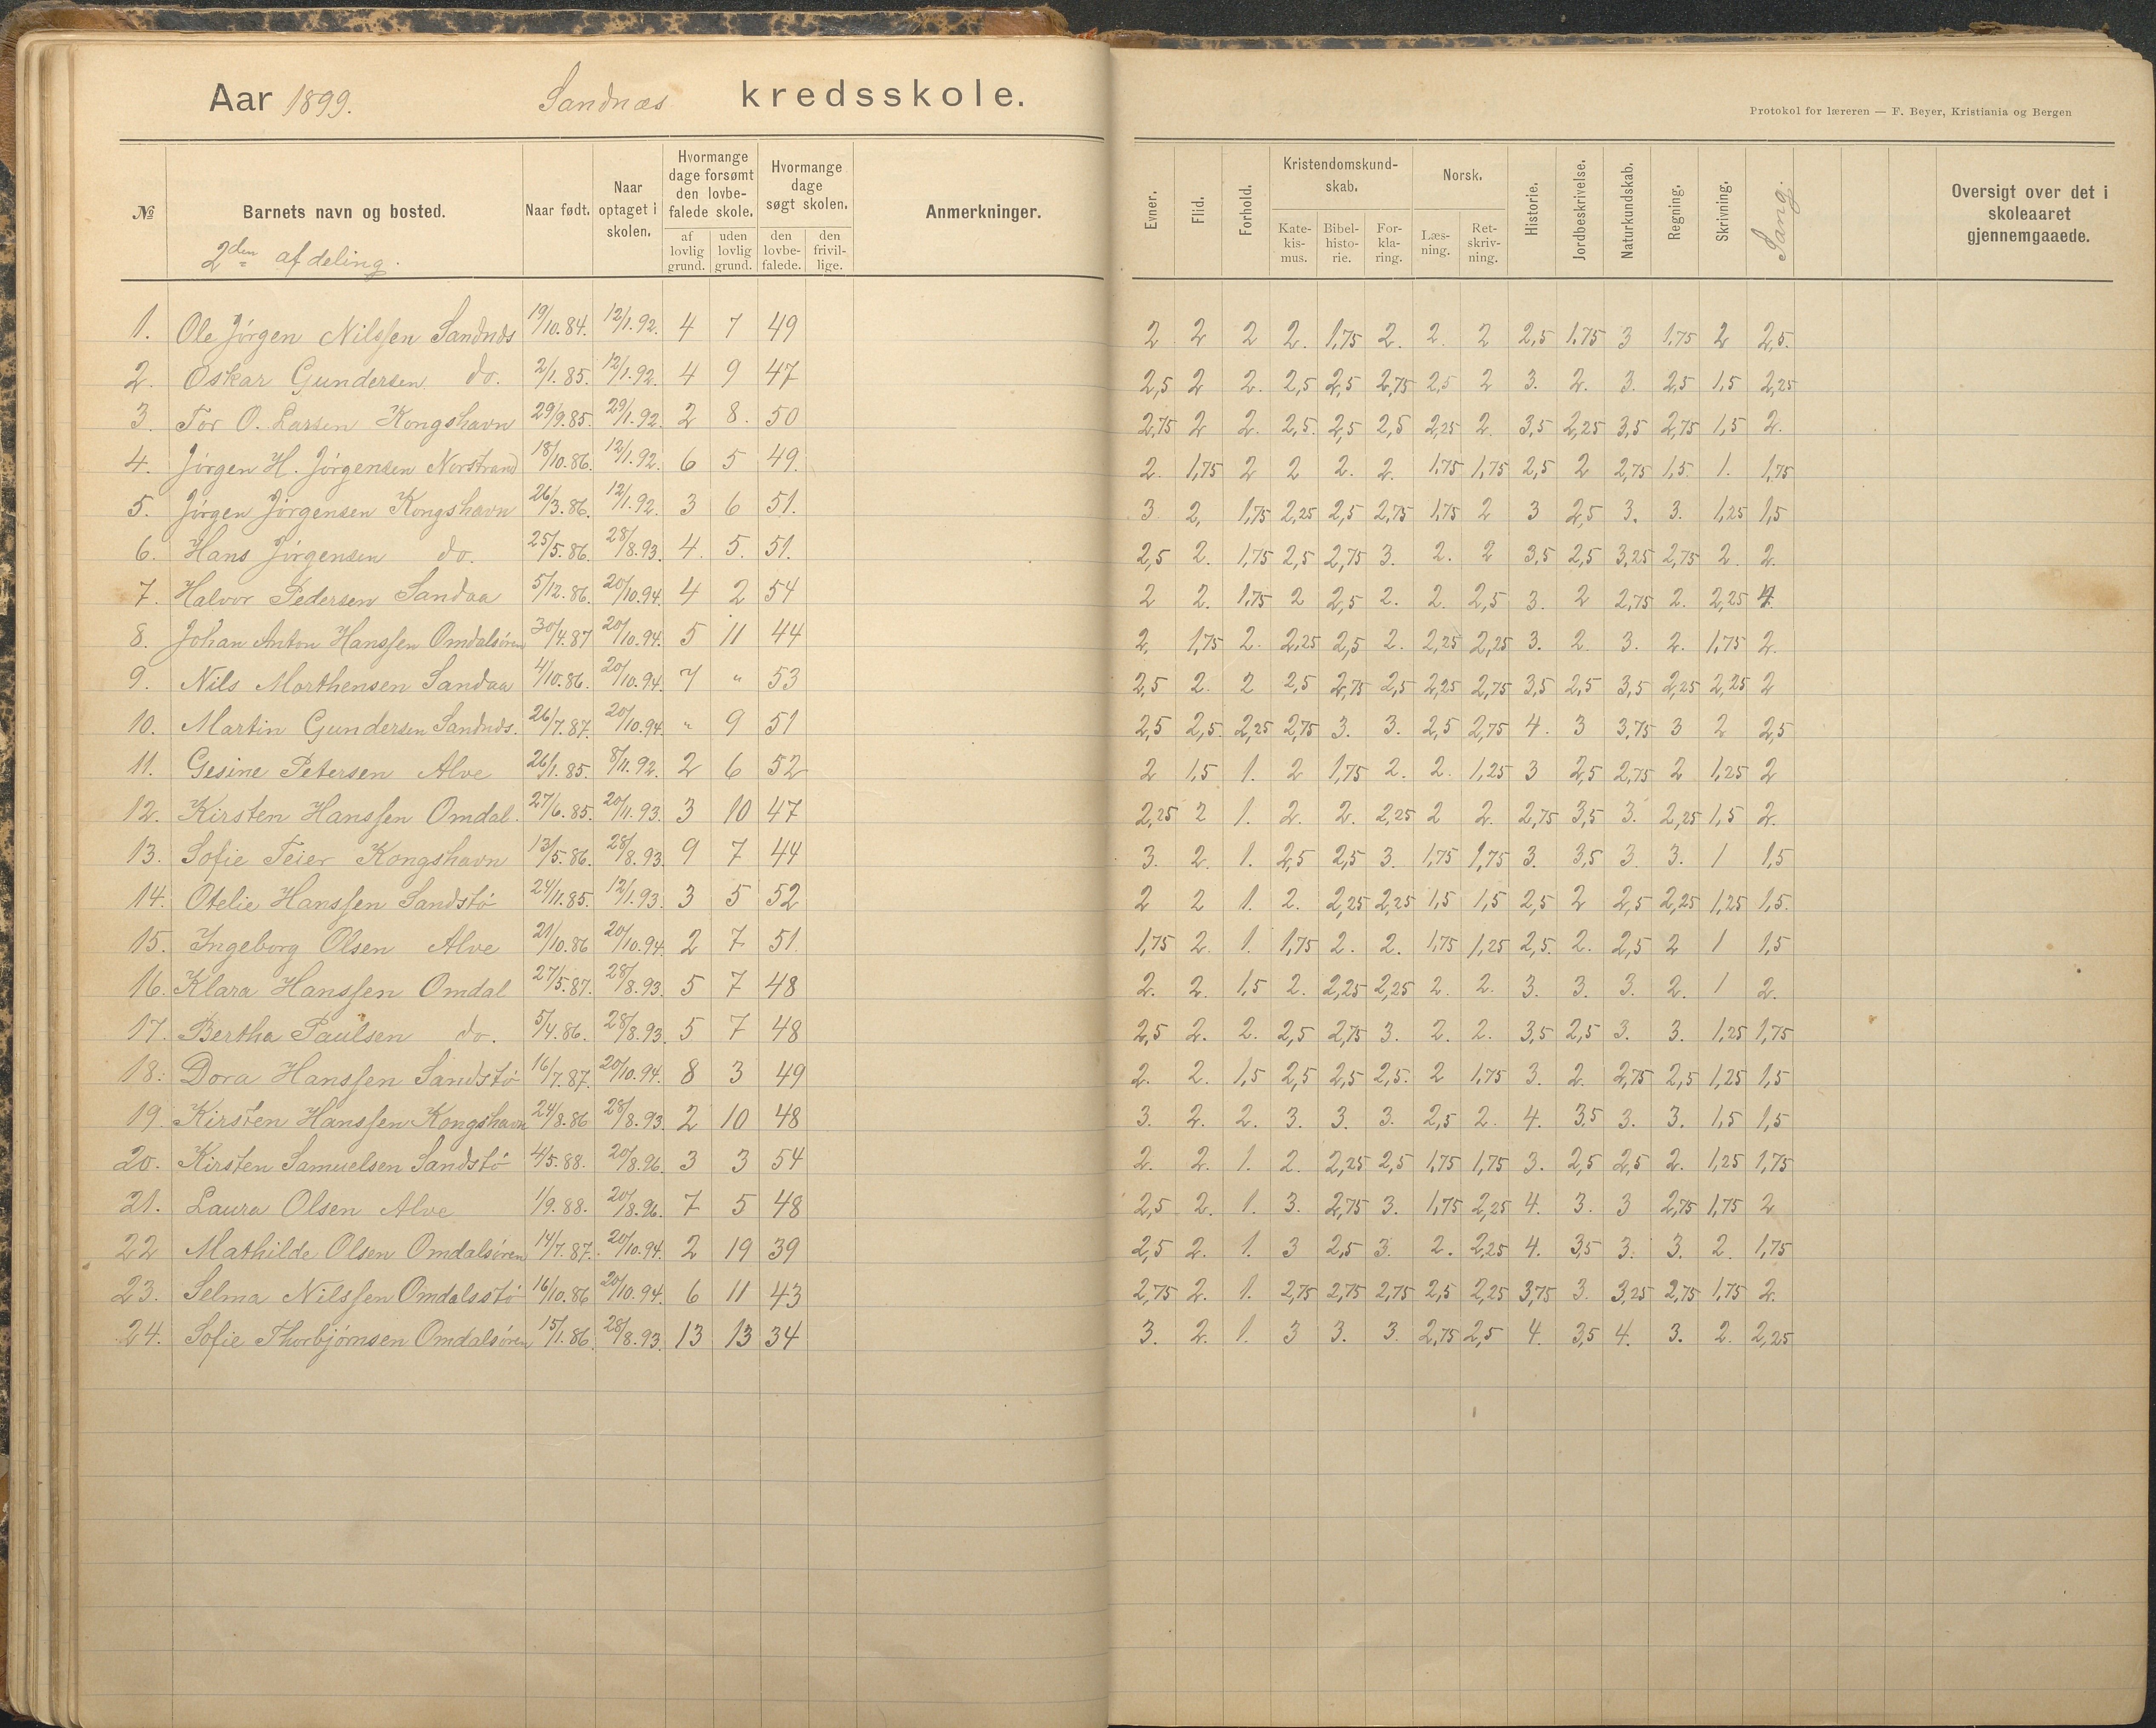 Aar 1899. Sandnæs kredsskole.
Protokol for læreren — F. Beyer, Kristiania og Bergen
№ Barnets navn og bosted. Naar født. Naar optaget i skolen. Hvormange dage forsømt den lovbefalede skole. af lovlig grund. uden lovlig grund. Hvormange dage søgt skolen. den lovbefalede. den frivillige. Anmerkninger. Evner. Flid. Forhold. Kristendomskundskab. Katekismus. Bibelhistorie. Forklaring. Norsk. Læsning. Retskrivning. Historie. Jordbeskrivelse. Naturkundskab. Regning. Skrivning. Sang. Oversigt over det i skoleaaret gjennemgaaede.
2den afdeling.
1. Ole Jörgen Nilssen Sandnæs 19/10.84. 12/1.92. 4 7 49 2 2 2 2. 1,75 2. 2. 2 2,5 1,75 3 1,75 2 2,5.
2. Oskar Gundersen do. 2/1.85. 12/1.92. 4 9 47 2,5 2 2. 2,5 2,5 2,75 2,5 2 3. 2. 3. 2,5 1,5 2,25
3. Tor O. Larsen Kongshavn 29/9.85. 29/1.92. 2 8. 50 2,75 2 2. 2,5. 2,5 2,5 2,25 2. 3,5 2,25 3,5 2,75 1,5 2.
4. Jörgen H. Jörgensen Norstrand 18/10.86. 12/1.92. 6 5 49. 2. 1,75 2 2 2. 2. 1,75 1,75 2,5 2 2,75 1,5. 1. 1,75
5. Jörgen Jörgensen Kongshavn 26/3.86. 12/1.92. 3 6 51. 3 2, 1,75 2,25 2,5 2,75 1,75 2 3 2,5 3. 3. 1,25 1,5
6. Hans Jörgensen do. 25/5.86. 28/8.93. 4. 5. 51. 2,5 2. 1,75 2,5 2,75 3. 2. 2 3,5 2,5 3,25 2,75 2. 2.
7. Halvor Pedersen Sandaa 5/12.86. 20/10.94. 4 2 54 2 2. 1,75 2 2,5 2. 2. 2,5 3. 2 2,75 2. 2,25 4.
8. Johan Anton Hanssen Omdalsören 30/4.87 20/10.94. 5 11 44 2, 1,75 2. 2,25 2,5 2. 2,25 2,25 3. 2. 3. 2. 1,75 2.
9. Nils Morthensen Sandaa 4/10.86. 20/10.94. 7 " 53 2,5 2. 2 2,5 2,75 2,5 2,25 2,75 3,5 2,5 3,5 2,25 2,25 2
10. Martin Gundersen Sandnæs. 26/7.87. 20/10.94. " 9 51 2,5 2,5. 2,25 2,75 3. 3. 2,5 2,75 4. 3 3,75 3 2 2,5
11. Gesine Petersen Alve 26/1.85. 8/11.92. 2 6 52 2 1,5 1. 2 1,75 2. 2. 1,25 3 2,5 2,75 2 1,25 2
12. Kirsten Hanssen Omdal. 27/6.85. 20/11.93. 3 10 47 2,25 2 1. 2. 2. 2,25 2 2. 2,75 3,5 3. 2,25 1,5 2.
13. Sofie Feier Kongshavn 13/5.86. 28/8.93 9 7 44 3. 2. 1. 2,5 2,5 3. 1,75 1,75 3. 3,5 3. 3. 1 1,5
14. Otelie Hanssen Sandstö 24/11.85. 12/1.93. 3 5 52 2 2 1. 2. 2,25 2,25 1,5 1,5 2,5 2 2,5 2,25 1,25 1,5.
15. Ingeborg Olsen Alve 21/10.86 20/10.94. 2 7 51. 1,75 2. 1. 1,75 2. 2. 1,75 1,25 2,5. 2. 2,5 2 1 1,5
16. Klara Hanssen Omdal 27/5.87. 28/8.93. 5 7 48 2. 2. 1,5 2. 2,25 2,25 2. 2. 3. 3. 3. 2. 1 2.
17. Bertha Paulsen do. 5/4.86. 28/8.93. 5 7 48 2,5 2. 2. 2,5 2,75 3. 2. 2. 3,5 2,5 3. 3. 1,25 1,75
18. Dora Hanssen Sandstö 16/7.87. 20/10.94. 8 3 49 2. 2. 1,5 2,5 2,5 2,5. 2 1,75 3. 2. 2,75 2,5 1,25 1,5
19. Kirsten Hanssen Kongshavn 24/8.86 28/8.93. 2 10 48 3. 2. 2. 3. 3. 3. 2,5 2. 4. 3,5 3. 3. 1,5 1,5
20. Kirsten Samuelsen Sandstö 4/5.88. 20/8.96. 3 3 54 2. 2. 1. 2. 2,25 2,5 1,75 1,75 3. 2,5 2,5 2. 1,25 1,75
21. Laura Olsen Alve 1/9.88. 20/8.96. 7 5 48 2,5 2. 1. 3. 2,75 3. 1,75 2,25 4. 3. 3 2,75 1,75 2
22 Mathilde Olsen Omdalsören 14/7.87. 20/10.94. 2 19 39 2,5 2. 1. 3 2,5 3. 2. 2,25 4. 3,5 3. 3. 2. 1,75
23. Selma Nilssen Omdalsstö 16/10.86 20/10.94. 6 11 43 2,75 2. 1. 2,75 2,75 2,75 2,5 2,25 3,75 3. 3,25 2,75 1,75 2.
24. Sofie Thorbjörnsen Omdalsören 15/1.86. 28/8.93. 13 13 34 3. 2. 1. 3 3. 3. 2,75 2,5 4. 3,5 4. 3. 2. 2,25